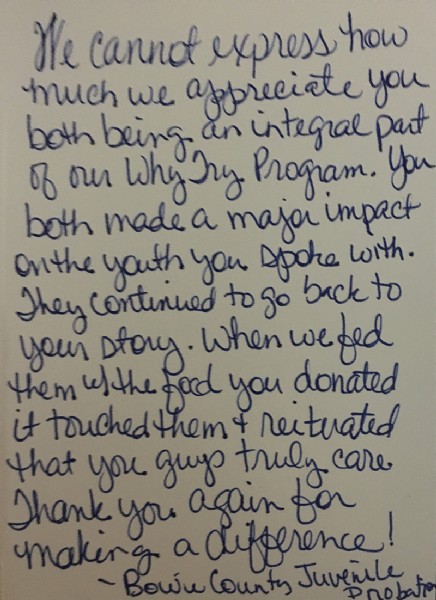 We cannot express how
much we appreciate you
both being an integral part
of our Why Try Program. You
both made a major impact
on the youth you spoke with.
They continued to go back to
your story. When we fed
them w/ the food you donated
it touched them + reituated
that you guys truly care.
Thank you again for
making a difference!
~ Bowie County Juvenile
Probation